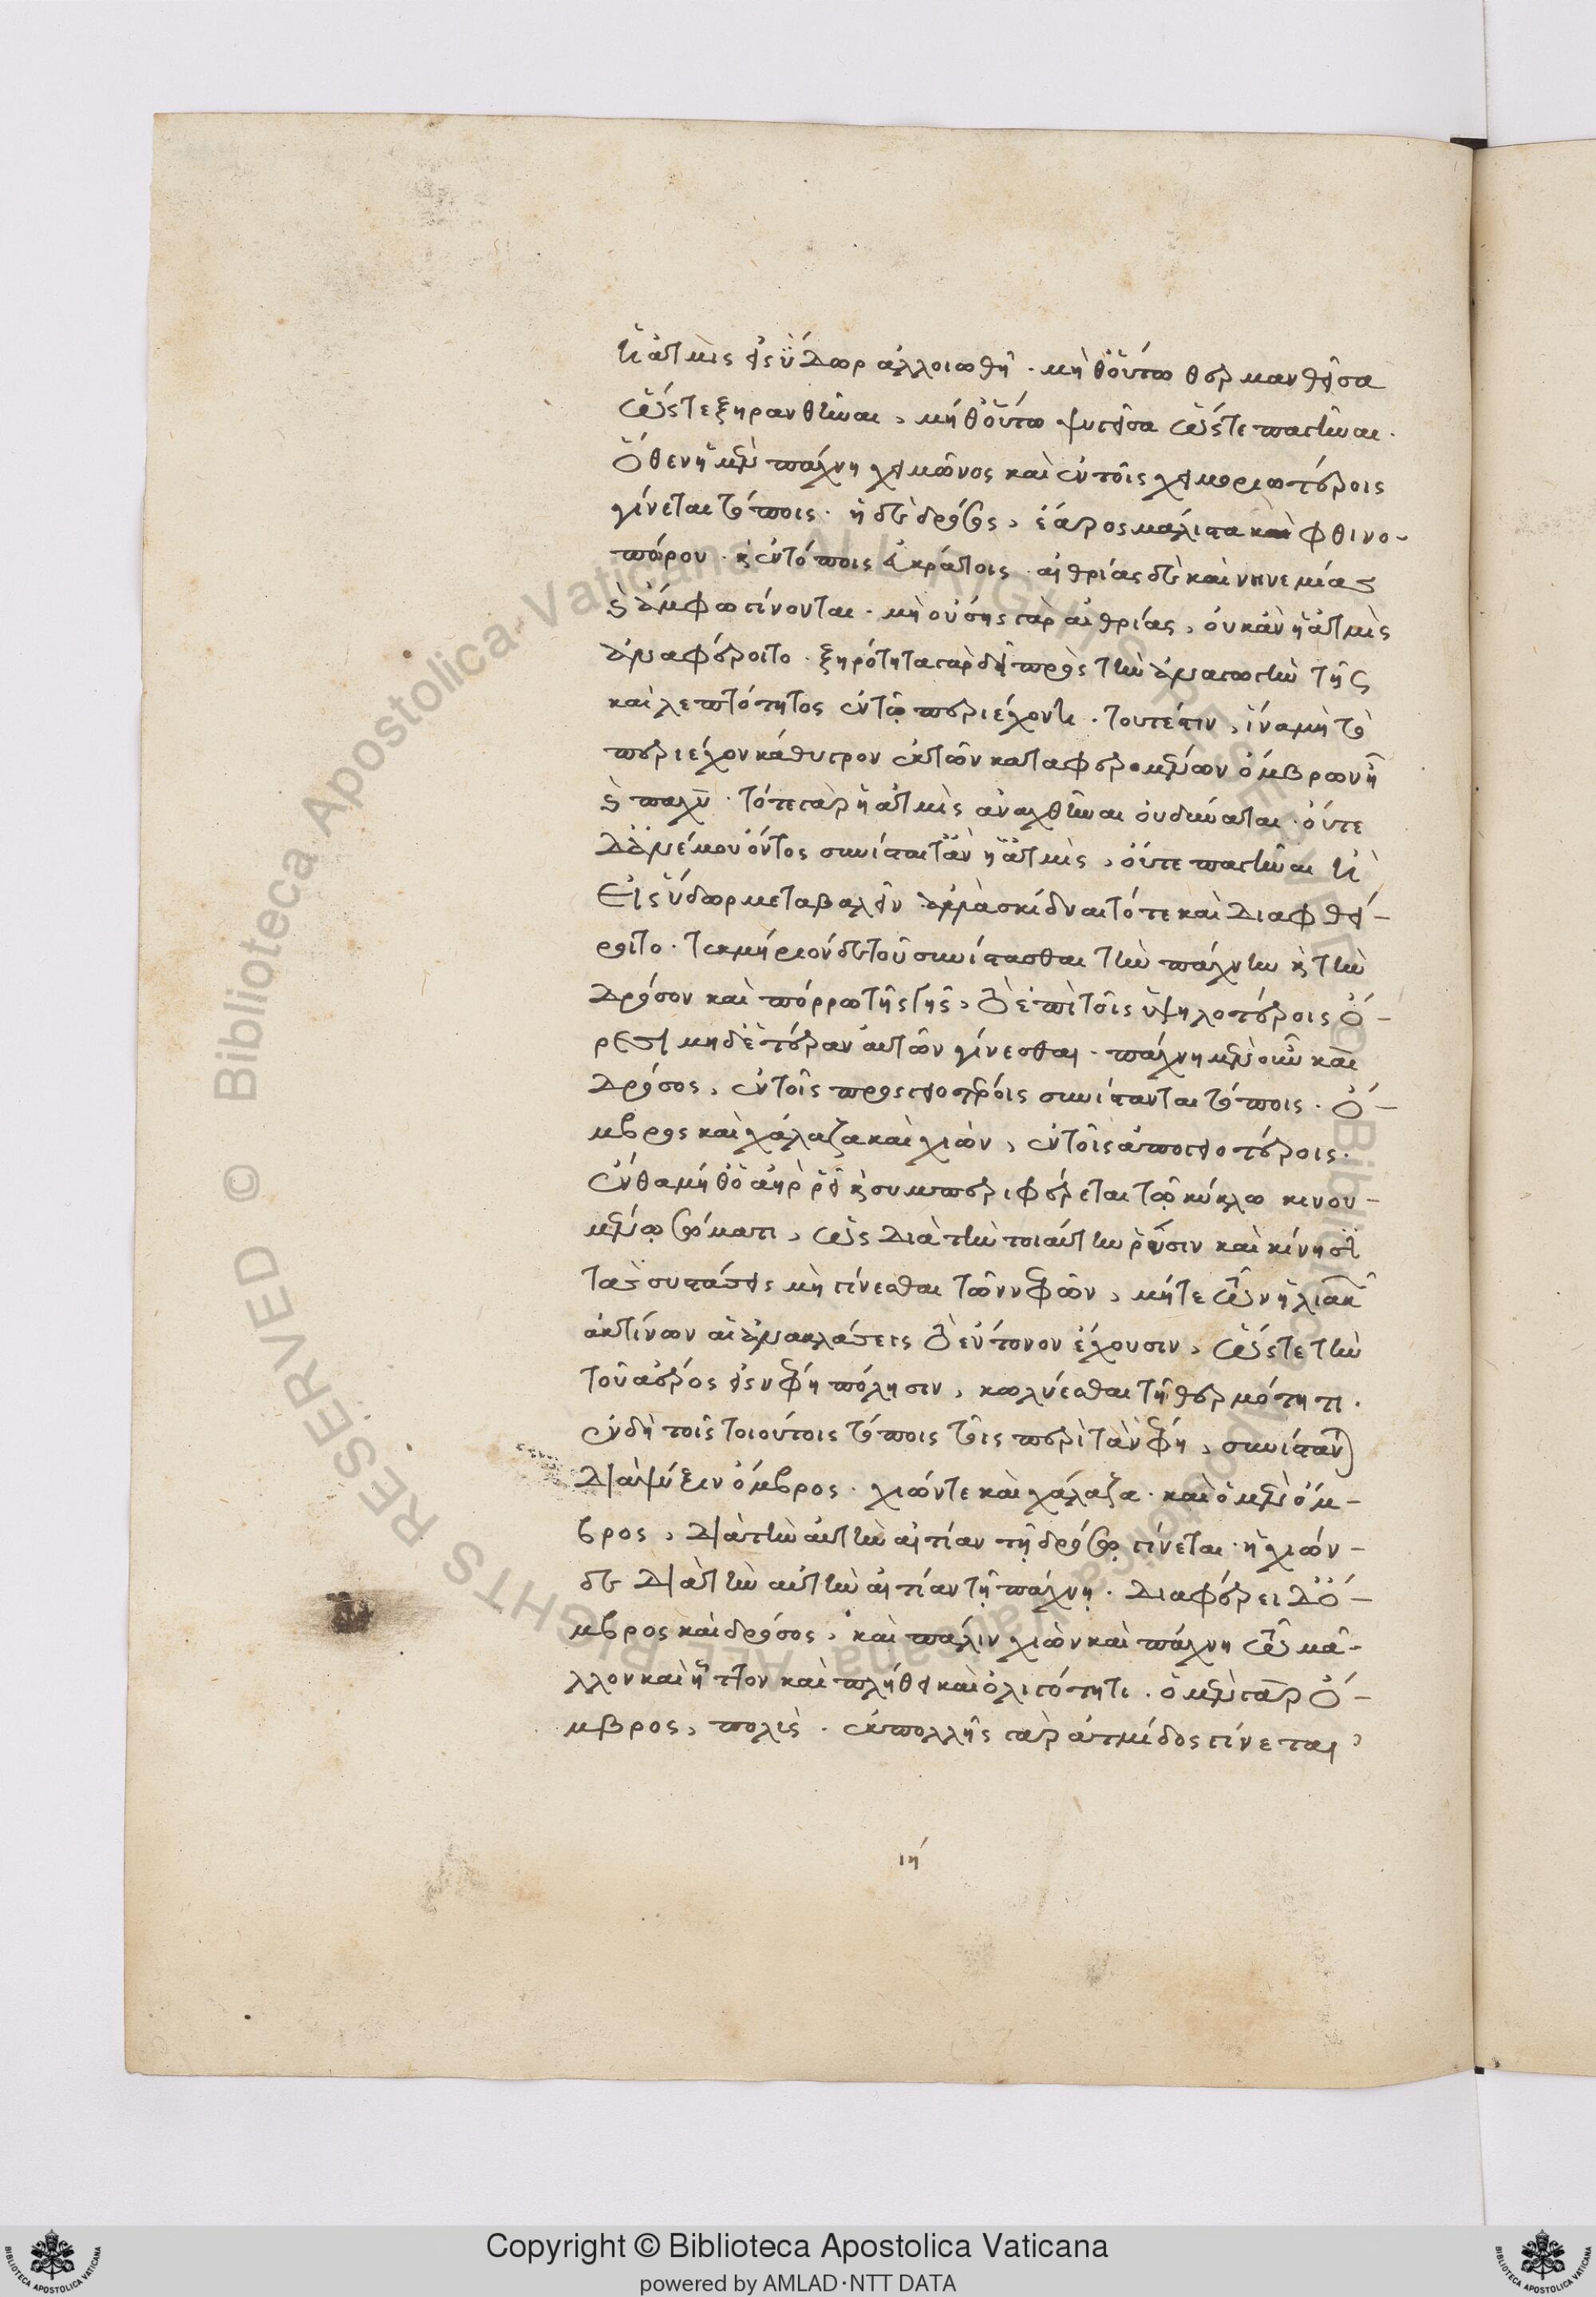 ἡ ἀτμὶς εἰς ὕδωρ ἀλλοιωθῇ. μήθ οὕτω θερμανθεῖσα
ὥστε ξηρανθῆναι, μήθ οὕτω ψυγεῖσα ὥστε παγῆναι.
ὅθεν ἡ μὲν πάχνη χειμῶνος καὶ ἐν τοῖς χειμεριωτέροις
γίνεται τόποις. ἡ δὲ δρόσος, ἔαρος μάλιστα καὶ φθινο-
πώρου. κἀν τόποις εὐκράτοις. αἰθρίας δὲ καὶ νηνεμίας
ἄμφω γίνονται. μὴ οὔσης γὰρ αἰθρίας, οὐκ ἂν ἡ ἀτμὶς
ἀναφέροιτο. ξηρότητα γὰρ δεῖ πρὸς τὴν ἀναγωγὴν τῆς
καὶ λεπτότητος ἐν τῷ περιέχοντι. τουτέστιν, ἵνα μὴ τὸ
περιέχον κάθυγρον ἐκ τῶν καταφερομένων ὄμβρων ᾖ
παχύ. τότε γὰρ ἡ ἀτμὶς ἀναχθῆναι οὐ δύναται. οὔτε
δ ἀνέμου ὄντος συνίσταιτ ἂν ἡ ἀτμὶς, ὥστε παγῆναι ἢ
εἰς ὕδωρ μεταβαλεῖν. ἀλλὰ σκίδναιτό τε καὶ διαφθεί-
ροιτο. τεκμήριον δὲ τοῦ συνίστασθαι τὴν πάχνην κ τὴν
δρόσον καὶ πόρρω τῆς γῆς, τὸ ἐπὶ τοῖς ὑψηλοτέροις ὄ-
ρεσι μηδετέραν αὐτῶν γίνεσθαι. πάχνη μὲν οὖν καὶ
δρόσος, ἐν τοῖς προσγειοτέροις συνίστανται τόποις. ὄ-
μβρος καὶ χάλαζα καὶ χιὼν, ἐν τοῖς ἀπογειοτέροις.
ἔνθα μήθ ὁ ἀὴρ ῥεῖ κ συμπεριφέρεται τῷ κύκλῳ κινου-
μένῳ σώματι, ὡς διὰ τὴν τοιαύτην ῥύσιν καὶ κίνησιν
τὰς συστάσεις μὴ γίνεσθαι τῶν νεφῶν, μήτε τῶν ἡλιακῶν
ἀκτίνων αἱ ἀνακλάσεις τὸ εὔτονον ἔχουσιν, ὥστε τὴν
τοῦ ἀέρος εἰς νέφη πόλησιν, κωλύεσθαι τῇ θερμότητι.
ἐν δὴ τοῖς τοιούτοις τόποις τοῖς περὶ τὰ νέφη, συνίσταται
διὰ ψύξιν ὄμβρος. χιών τε καὶ χάλαζα. καὶ ὁ μὲν ὄμ-
βρος, διὰ τὴν αὐτὴν αἰτίαν τῇ δρόσῳ γίνεται. ἡ χιὼν
δὲ διὰ τὴν αὐτὴν αἰτίαν τῇ πάχνῃ. διαφέρει δ ὄ-
μβρος καὶ δρόσος, καὶ πάλιν χιὼν καὶ πάχνη τῷ μᾶ-
λλον καὶ ἧττον καὶ πλήθει καὶ ὀλιγότητι. ὁ μὲν γὰρ ὄ-
μβρος, πολὺς. ἐκ πολλῆς γὰρ ἀτμίδος γίνεται,
ιη
Copyright © Biblioteca Apostolica Vaticana
powered by AMLAD·NTT DATA
© Biblioteca Apostolica Vaticana ALL RIGHTS RESERVED